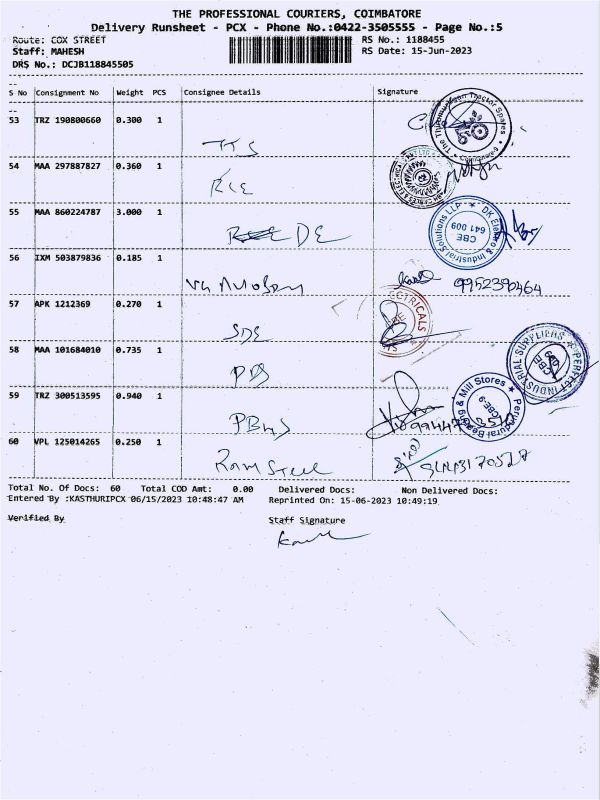 THE PROFESSIONAL COURIERS, COIMBATORE
Delivery Runsheet - PCX - Phone No.:0422-3505555 - Page No.:5
Route: COX STREET RS No.: 1188455
Staff: MAHESH RS Date: 15-Jun-2023
DRS No.: DCJB118845505
S No Consignment No Weight PCS Consignee Details Signature
53 TRZ 190800660 0.300 1
TTS
54 MAA 297887827 0.360 1
RIE
55 MAA 860224787 3.000 1
DE
DK Elektro & Industrial Solutions LLP
CBE
641 009
56 IXM 503879836 0.185 1
9952390464
57 APK 1212369 0.270 1
SDE
58 MAA 101684010 0.735 1
PDS
PERFECT INDUSTRIAL SUPPLIERS
CBE
59 TRZ 300513595 0.940 1
PBMS
Perundurai Bearing & Mill Stores
CBE-9
60 VPL 125014265 0.250 1
Ram Steel
Total No. Of Docs: 60 Total COD Amt: 0.00 Delivered Docs: Non Delivered Docs:
Entered By :KASTHURIPCX 06/15/2023 10:48:47 AM Reprinted On: 15-06-2023 10:49:19
Verified By Staff Signature